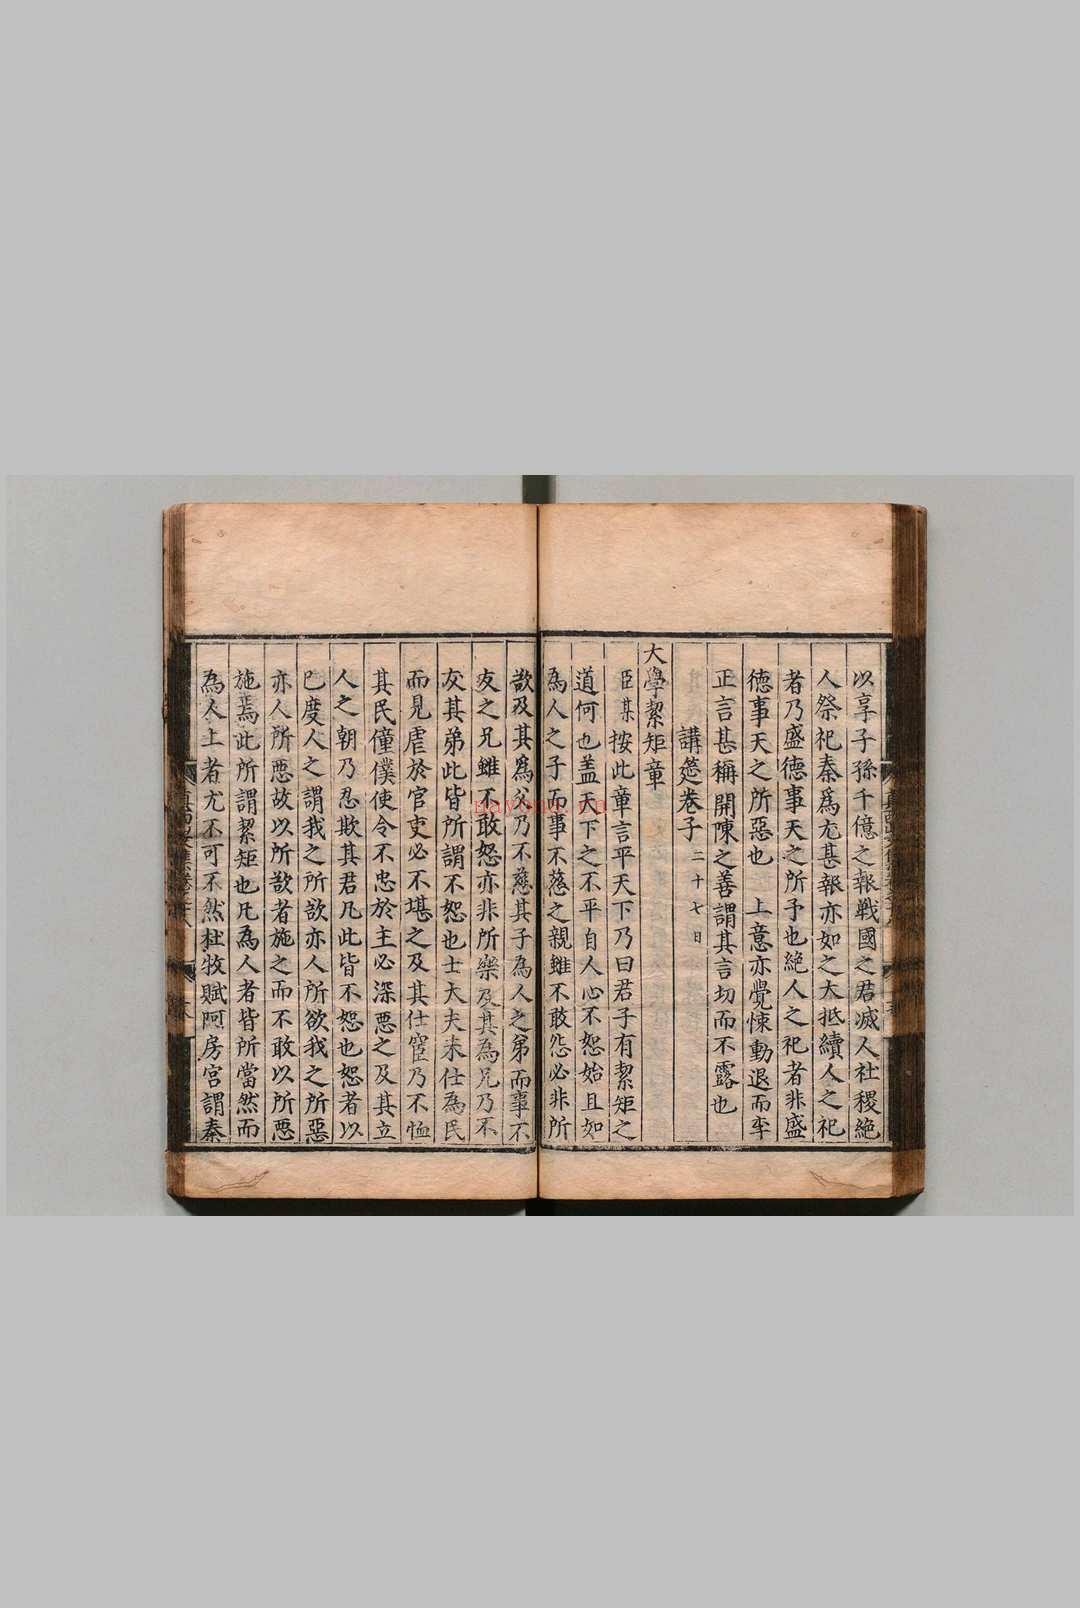 以享子孫千億之報戰國之君滅人社稷絶
人祭祀秦爲尤甚報亦如之大抵續人之祀
者乃盛德事天之所予也絶人之祀者非盛
徳事天之所惡也 上意亦覺悚動退而李
正言甚稱開陳之善謂其言切而不露也
講筵卷子二十七日
大學絜矩章
臣某按此章言平天下乃曰君子有絜矩之
道何也盖天下之不平自人心不恕始且如
為人之子而事不慈之親雖不敢怨必非所
欲及其爲父乃不慈其子為人之弟而事不
友之兄雖不敢怨亦非所樂及其為兄乃不
友其弟此皆所謂不恕也士大夫未仕為民
而見虐於官吏必不堪之及其仕宦乃不恤
其民僮僕使令不忠於主必深惡之及其立
人之朝乃忍欺其君凡此皆不恕也恕者以
已度人之謂我之所欲亦人所欲我之所惡
亦人所惡故以所欲者施之而不敢以所惡
施焉此所謂絜矩也凡為人者皆所當然而
為人上者尤不可不然杜牧賦阿房宫謂秦